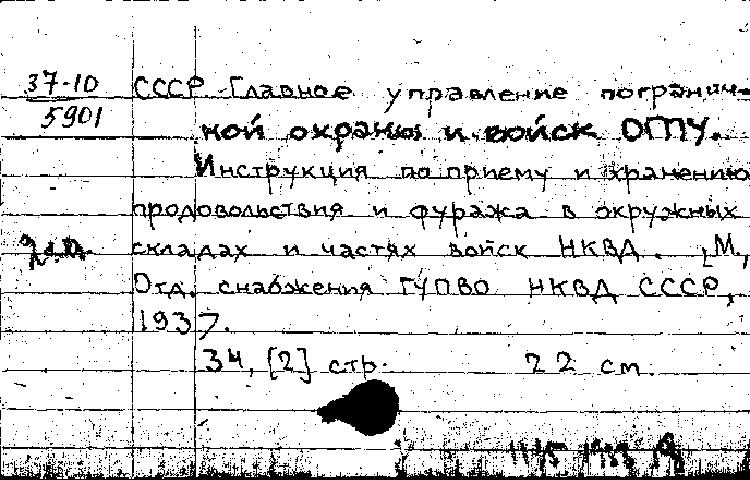 37-10
5901
СССР Главное управление погранич-
ной охраны и войск ОГПУ.
Инструкция по приему и хранению
продовольствия и фуража в окружных
складах и частях войск НКВД. [М.,
Отд. снабжения ГУПВО НКВД СССР,
1937.
34, [2] стр. 22 см.